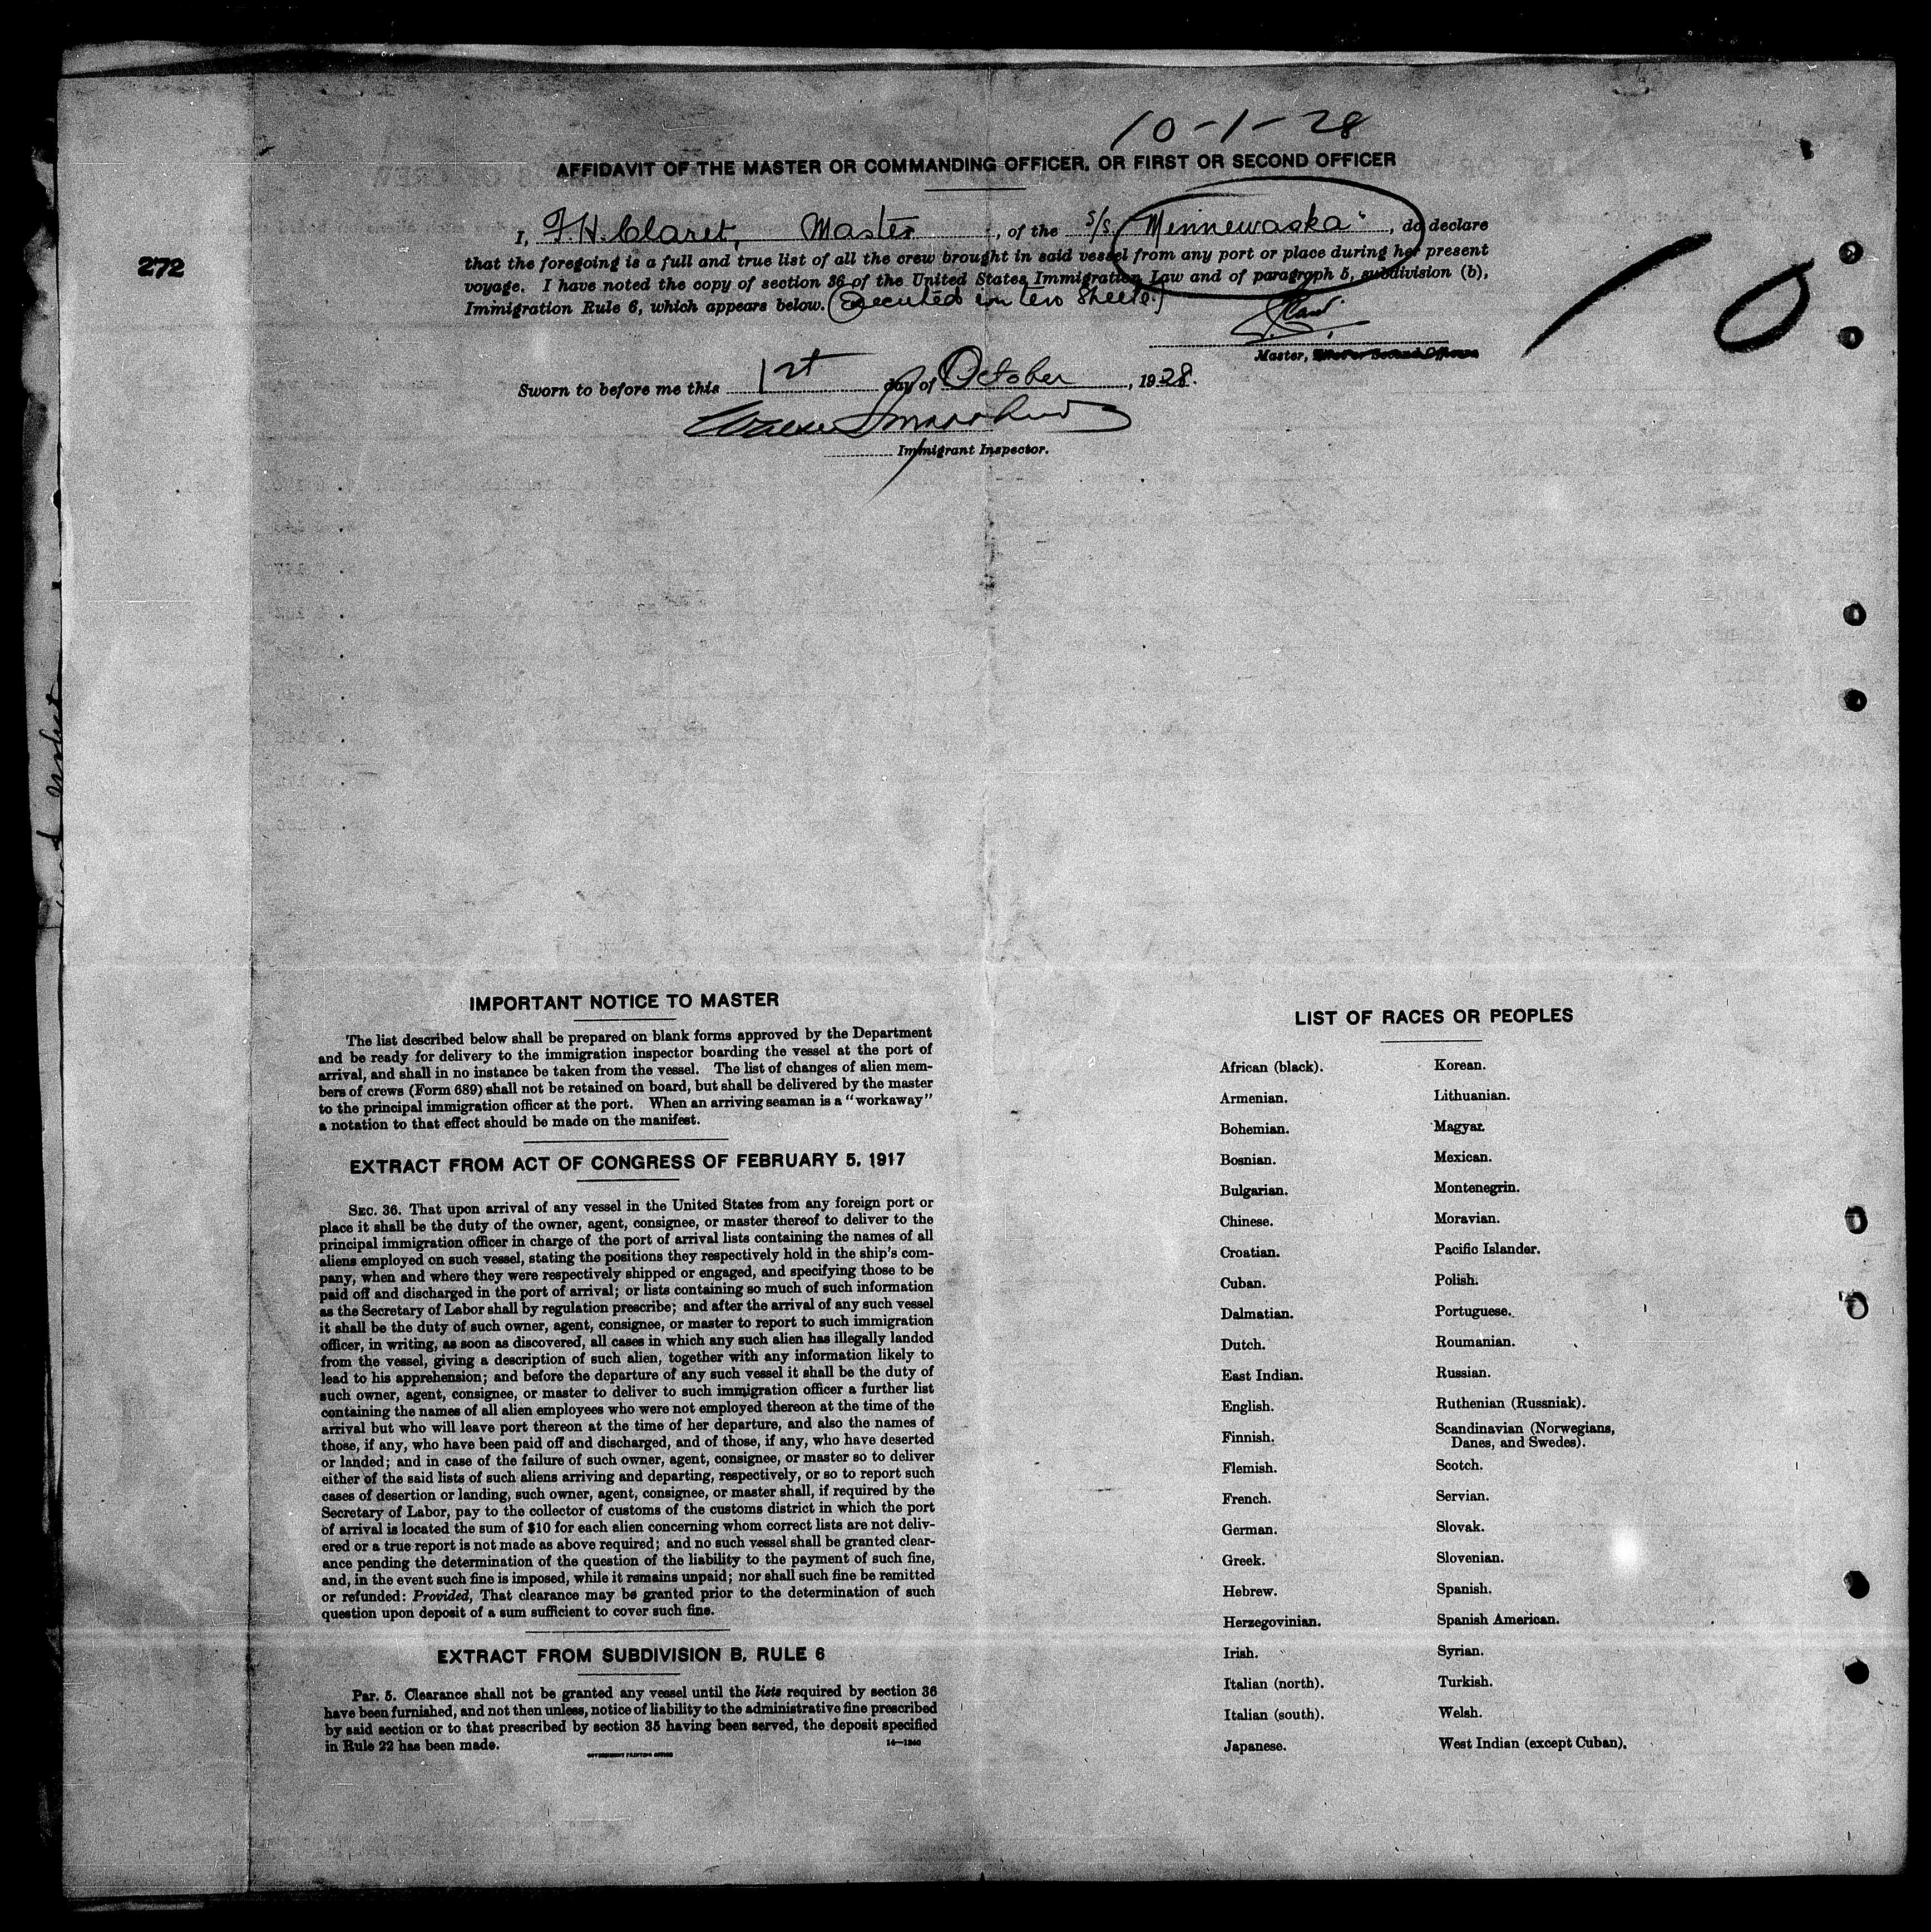 10-1-28
AFFIDAVIT OF THE MASTER OR COMMANDING OFFICER, OR FIRST OR SECOND OFFICER
I, F. H. Claret, Master, of the S/S. "Minnewaska", do declare
that the foregoing is a full and true list of all the crew brought in said vessel from any port or place during her present
voyage. I have noted the copy of section 36 of the United States Immigration Law and of paragraph 5, subdivision (b),
Immigration Rule 6, which appears below. (Executed in two Sheets.)
10
272
Master, First or Second Officer.
Sworn to before me this 1st day of October, 1928.
Immigrant Inspector.
IMPORTANT NOTICE TO MASTER
The list described below shall be prepared on blank forms approved by the Department
and be ready for delivery to the immigration inspector boarding the vessel at the port of
arrival, and shall in no instance be taken from the vessel. The list of changes of alien mem-
bers of crews (Form 689) shall not be retained on board, but shall be delivered by the master
to the principal immigration officer at the port. When an arriving seaman is a "workaway"
a notation to that effect should be made on the manifest.
EXTRACT FROM ACT OF CONGRESS OF FEBRUARY 5, 1917
SEC. 36. That upon arrival of any vessel in the United States from any foreign port or
place it shall be the duty of the owner, agent, consignee, or master thereof to deliver to the
principal immigration officer in charge of the port of arrival lists containing the names of all
aliens employed on such vessel, stating the positions they respectively hold in the ship's com-
pany, when and where they were respectively shipped or engaged, and specifying those to be
paid off and discharged in the port of arrival; or lists containing so much of such information
as the Secretary of Labor shall by regulation prescribe; and after the arrival of any such vessel
it shall be the duty of such owner, agent, consignee, or master to report to such immigration
officer, in writing, as soon as discovered, all cases in which any such alien has illegally landed
from the vessel, giving a description of such alien, together with any information likely to
lead to his apprehension; and before the departure of any such vessel it shall be the duty of
such owner, agent, consignee, or master to deliver to such immigration officer a further list
containing the names of all alien employees who were not employed thereon at the time of the
arrival but who will leave port thereon at the time of her departure, and also the names of
those, if any, who have been paid off and discharged, and of those, if any, who have deserted
or landed; and in case of the failure of such owner, agent, consignee, or master so to deliver
either of the said lists of such aliens arriving and departing, respectively, or so to report such
cases of desertion or landing, such owner, agent, consignee, or master shall, if required by the
Secretary of Labor, pay to the collector of customs of the customs district in which the port
of arrival is located the sum of $10 for each alien concerning whom correct lists are not deliv-
ered or a true report is not made as above required; and no such vessel shall be granted clear-
ance pending the determination of the question of the liability to the payment of such fine,
and, in the event such fine is imposed, while it remains unpaid; nor shall such fine be remitted
or refunded: Provided, That clearance may be granted prior to the determination of such
question upon deposit of a sum sufficient to cover such fine.
EXTRACT FROM SUBDIVISION B, RULE 6
Par. 5. Clearance shall not be granted any vessel until the lists required by section 36
have been furnished, and not then unless, notice of liability to the administrative fine prescribed
by said section or to that prescribed by section 35 having been served, the deposit specified
in Rule 22 has been made.
14—1240
GOVERNMENT PRINTING OFFICE
LIST OF RACES OR PEOPLES
African (black).
Armenian.
Bohemian.
Bosnian.
Bulgarian.
Chinese.
Croatian.
Cuban.
Dalmatian.
Dutch.
East Indian.
English.
Finnish.
Flemish.
French.
German.
Greek.
Hebrew.
Herzegovinian.
Irish.
Italian (north).
Italian (south).
Japanese.
Korean.
Lithuanian.
Magyar.
Mexican.
Montenegrin.
Moravian.
Pacific Islander.
Polish.
Portuguese.
Roumanian.
Russian.
Ruthenian (Russniak).
Scandinavian (Norwegians,
Danes, and Swedes).
Scotch.
Servian.
Slovak.
Slovenian.
Spanish.
Spanish American.
Syrian.
Turkish.
Welsh.
West Indian (except Cuban).